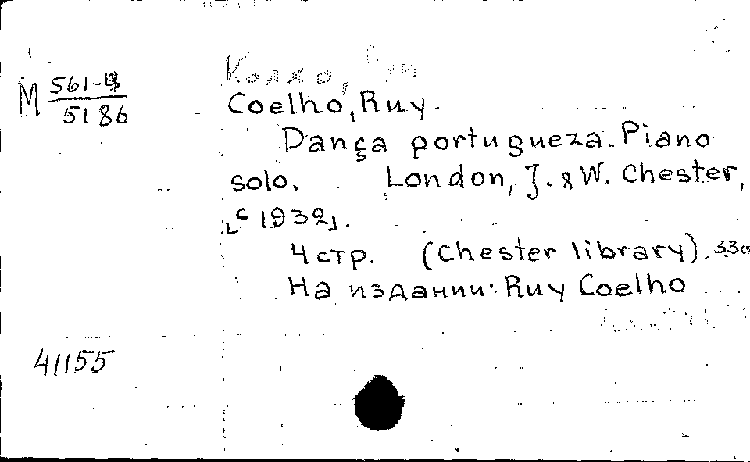 М 561-4
5186
Coelho, Ruy.
Dança portugueza. Piano
solo. London, J. & W. Chester,
[c 1932].
4 стр. (Chester library).
На издании: Ruy Coelho
41155